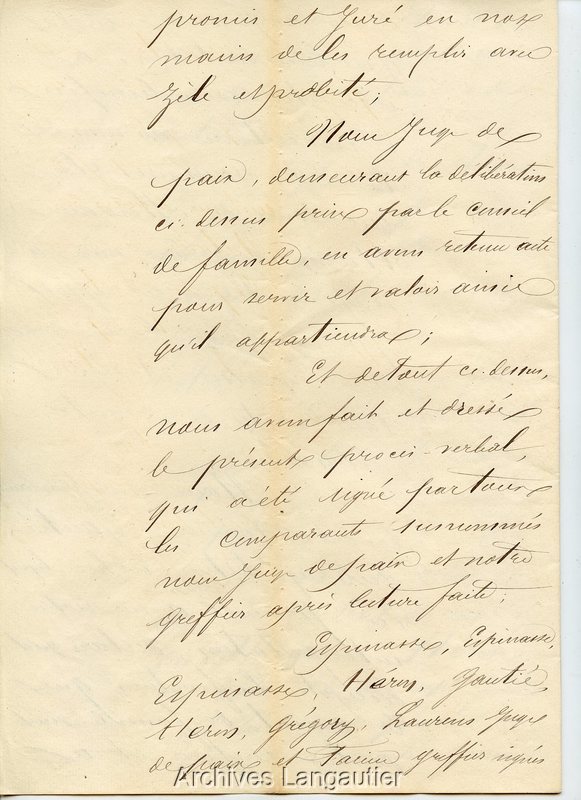 promis et juré en nos
mains de les remplir avec
zèle et probité;
Nous Juge de
paix, demeurant la délibération
ci-dessus prise par le conseil
de famille, en avons retenu acte
pour servir et valoir ainsi
qu'il appartiendra;
Et de tout ci-dessus,
nous avons fait et dressé
le présent procès-verbal,
qui a été signé par tous
les comparants susnommés
nous Juge de paix et notre
greffier après lecture faite;
Espinasse, Espinasse,
Espinasse, Héron, Gautié,
Héron, Grégory, Laurens Juge
de paix et greffier signés
Archives Langautier